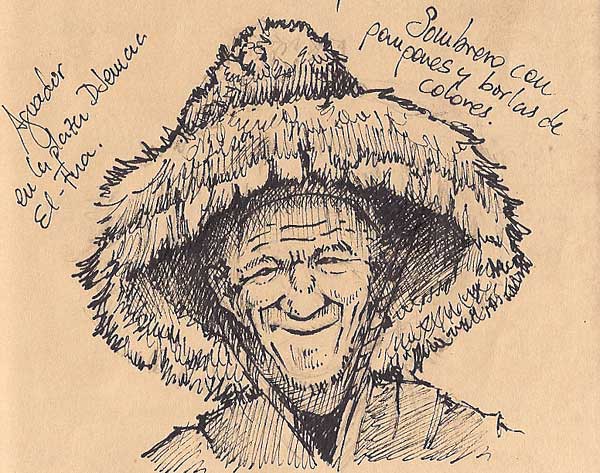 Aguador
en la plaza Djemaa
El-Fna.
Sombrero con
pompones y borlas de
colores.